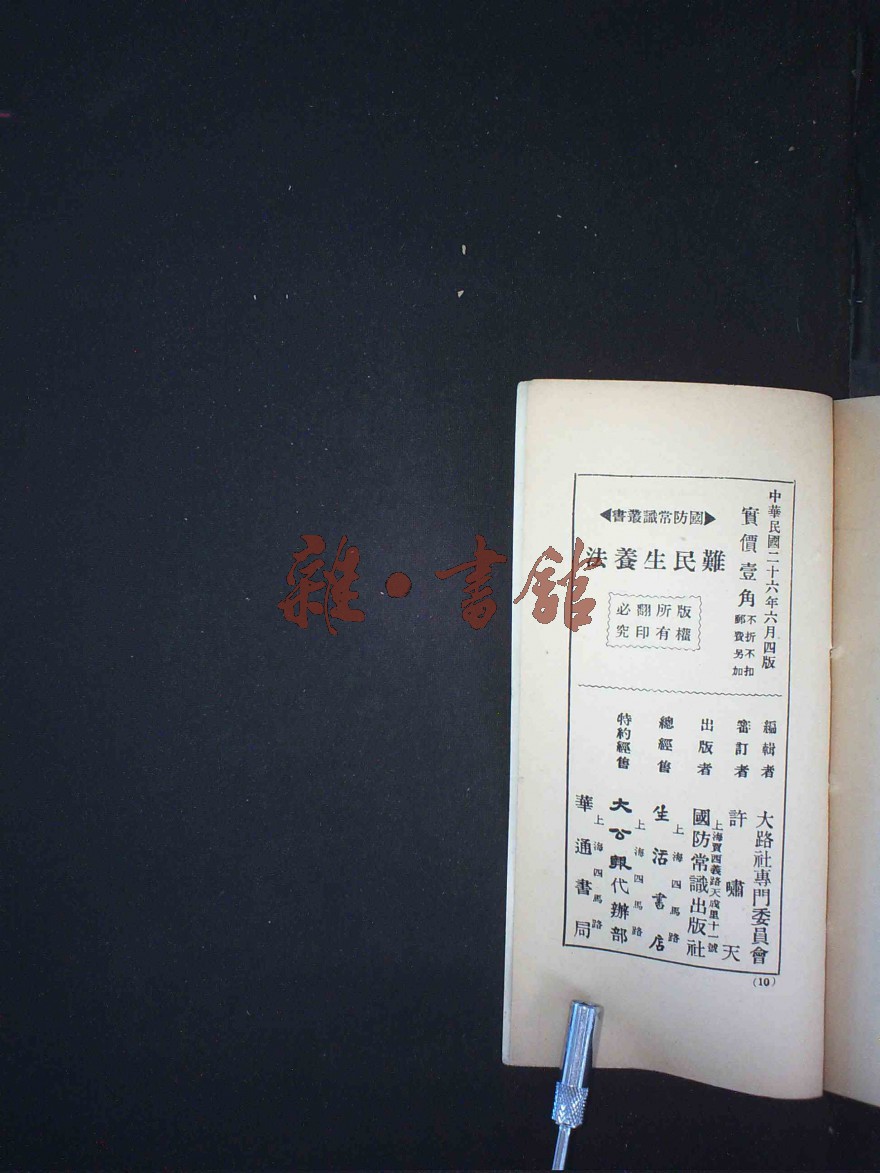 中華民國二十六年六月四版
實價壹角
不折不扣
郵費另加
▶國防常識叢書◀
難民生養法
版權所有
翻印必究
編輯者 大路社專門委員會
審訂者 許嘯天
出版者 國防常識出版社
上海賈西義路天成里十一號
總經售 生活書店
上海四馬路
特約經售 大公報代辦部
上海四馬路
華通書局
上海四馬路
(10)
雜·書館